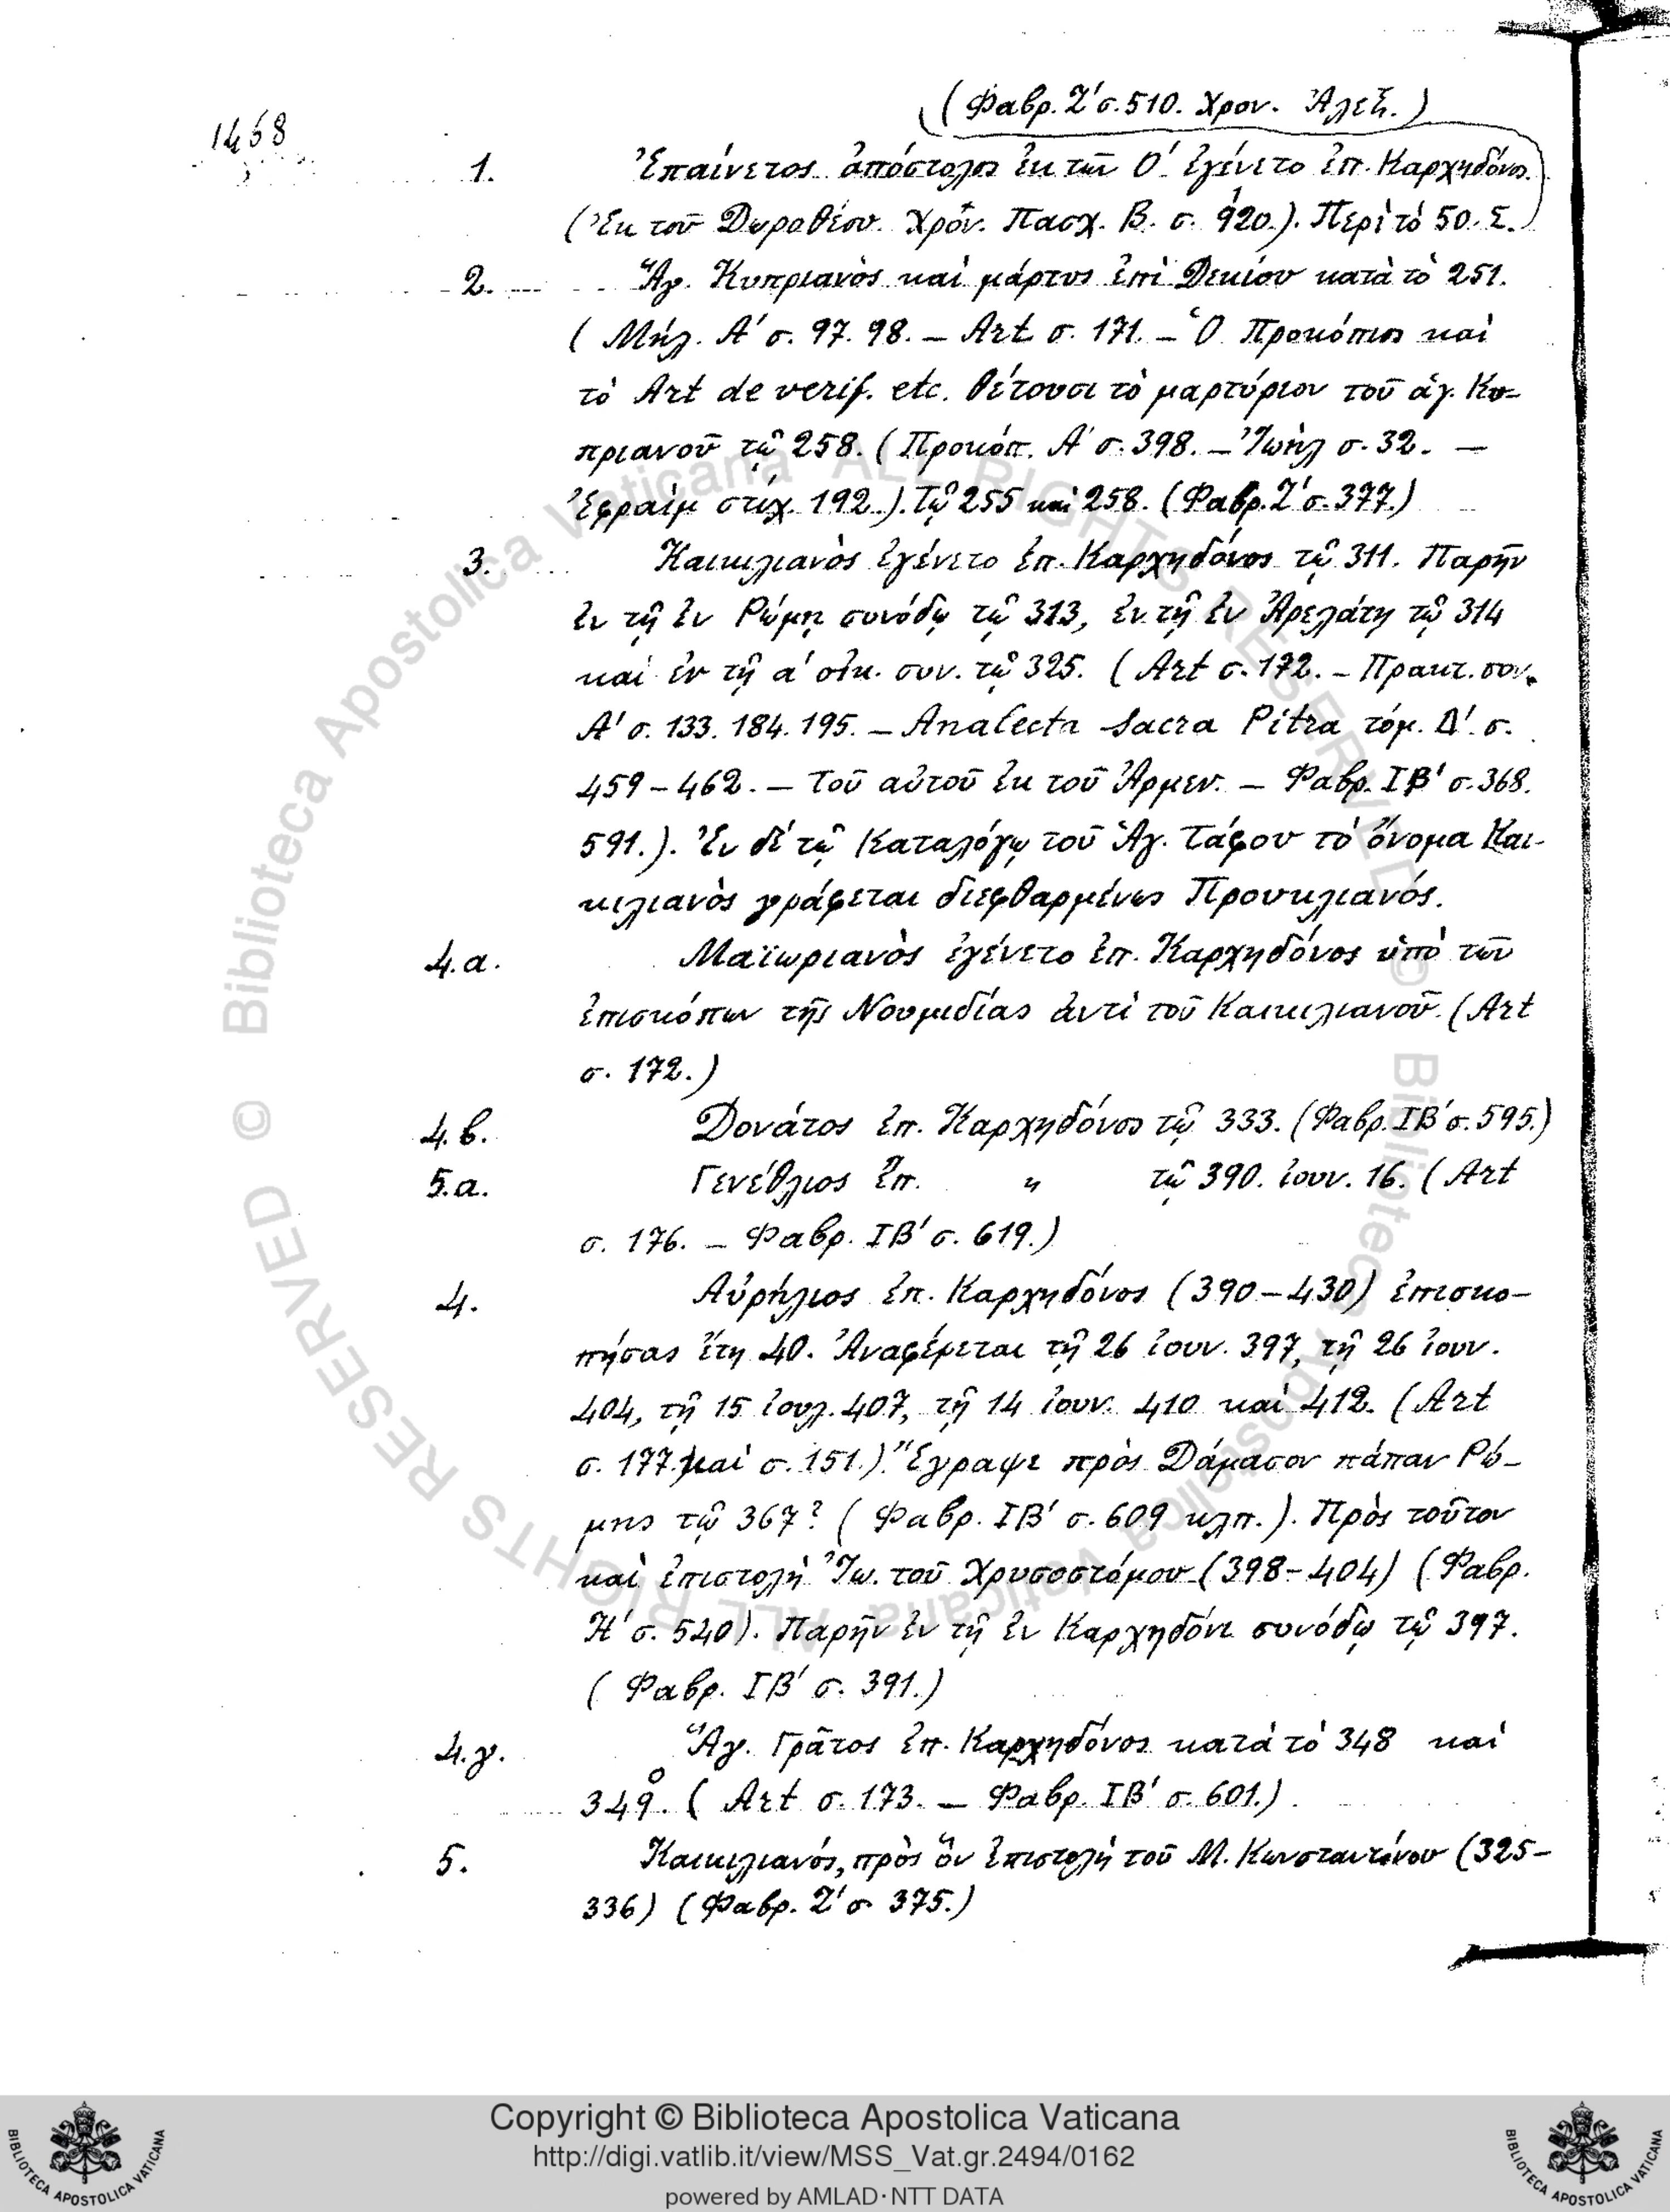 (Φαβρ. Ζ΄ σ. 510. Χρον. Ἀλεξ.)
1458
1. Ἐπαίνετος ἀπόστολος ἐκ τῶν Ο΄ ἐγένετο ἐπ. Καρχηδόνος.
(Ἐκ τοῦ Δωροθέου. Χρον. Πασχ. Β. σ. 920.). Περὶ τὸ 50. Σ.
2. Ἅγ. Κυπριανὸς καὶ μάρτυς ἐπὶ Δεκίου κατὰ τὸ 251.
(Μήλ. Α΄ σ. 97. 98. – Art σ. 171. – Ὁ Προκόπιος καὶ
τὸ Art de verif. etc. θέτουσι τὸ μαρτύριον τοῦ ἁγ. Κυ-
πριανοῦ τῷ 258. (Προκόπ. Α΄ σ. 398. – Ἰωὴλ σ. 32. –
Ἐφραὶμ στίχ. 192.). Τῷ 255 καὶ 258. (Φαβρ. Ζ΄ σ. 377.)
3. Καικιλιανὸς ἐγένετο ἐπ. Καρχηδόνος τῷ 311. Παρῆν
ἐν τῇ ἐν Ρώμῃ συνόδῳ τῷ 313, ἐν τῇ ἐν Ἀρελάτῃ τῷ 314
καὶ ἐν τῇ α΄ οἰκ. συν. τῷ 325. (Art σ. 172. – Πρακτ. συν.
Α΄ σ. 133. 184. 195. – Analecta Sacra Pitra τόμ. Δ΄. σ.
459–462. – Τοῦ αὐτοῦ ἐκ τοῦ Ἀρμεν. – Φαβρ. ΙΒ΄ σ. 368.
591.). Ἐν δὲ τῷ Καταλόγῳ τοῦ Ἁγ. Τάφου τὸ ὄνομα Και-
κιλιανὸς γράφεται διεφθαρμένως Προυκλιανός.
4.α. Μαϊωριανὸς ἐγένετο ἐπ. Καρχηδόνος ὑπὸ τῶν
ἐπισκόπων τῆς Νουμιδίας ἀντὶ τοῦ Καικιλιανοῦ. (Art
σ. 172.)
4.β. Δονάτος ἐπ. Καρχηδόνος τῷ 333. (Φαβρ. ΙΒ΄ σ. 595.)
5.α. Γενέθλιος ἐπ. " τῷ 390. ἰουν. 16. (Art
σ. 176. – Φαβρ. ΙΒ΄ σ. 619.)
4. Αὐρήλιος ἐπ. Καρχηδόνος (390–430) ἐπισκο-
πήσας ἔτη 40. Ἀναφέρεται τῇ 26 ἰουν. 397, τῇ 26 ἰουν.
404, τῇ 15 ἰουλ. 407, τῇ 14 ἰουν. 410 καὶ 412. (Art
σ. 177. καὶ σ. 151.). Ἔγραψε πρὸς Δάμασον πάπαν Ρώ-
μης τῷ 367? (Φαβρ. ΙΒ΄ σ. 609 κλπ.). Πρὸς τοῦτον
καὶ ἐπιστολὴ Ἰω. τοῦ Χρυσοστόμου (398–404) (Φαβρ.
Η΄ σ. 540). Παρῆν ἐν τῇ ἐν Καρχηδόνι συνόδῳ τῷ 397.
(Φαβρ. ΙΒ΄ σ. 391.)
4.γ. Ἅγ. Γρᾶτος ἐπ. Καρχηδόνος κατὰ τὸ 348 καὶ
349. (Art σ. 173. – Φαβρ. ΙΒ΄ σ. 601.)
5. Καικιλιανός, πρὸς ὃν ἐπιστολὴ τοῦ Μ. Κωνσταντίνου (325–
336) (Φαβρ. Ζ΄ σ. 375.)
© Biblioteca Apostolica Vaticana ALL RIGHTS RESERVED © Biblioteca Apostolica Vaticana ALL RIGHTS RESERVED
Copyright © Biblioteca Apostolica Vaticana
http://digi.vatlib.it/view/MSS_Vat.gr.2494/0162
powered by AMLAD · NTT DATA
BIBLIOTECA APOSTOLICA VATICANA
BIBLIOTECA APOSTOLICA VATICANA